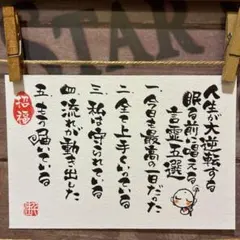 人生が大逆転する
眠る前に唱える
言霊五選
一.今日も最高の一日だった
二.全て上手くいっている
三.私は守られている
四.流れが動き出した
五.もう届いている
招福
STAR